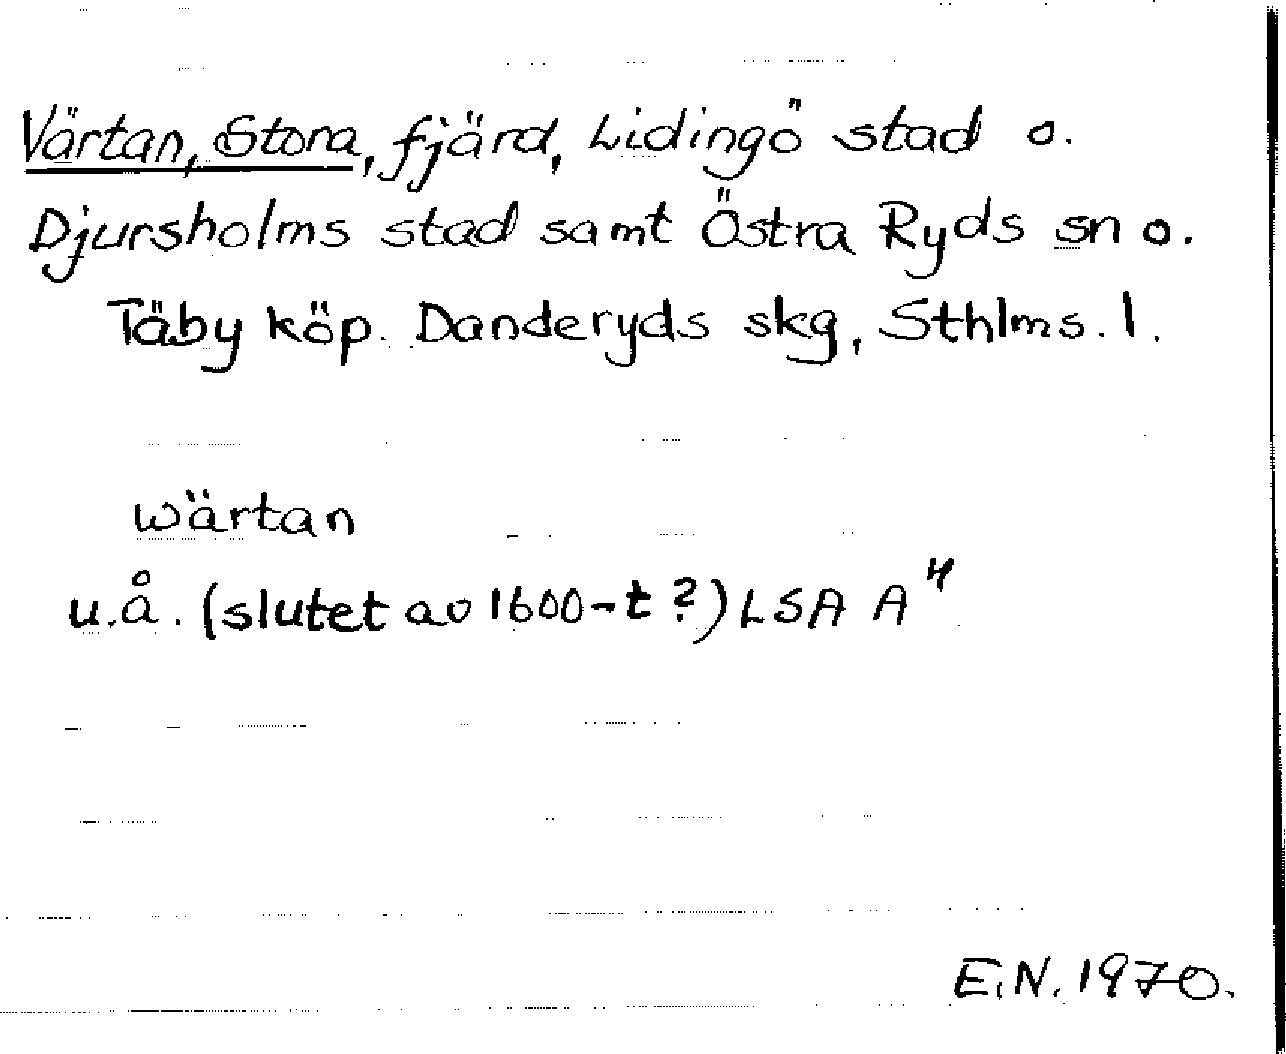 Värtan, Stora, fjärd, Lidingö stad o.
Djursholms stad samt Östra Ryds sn o.
Täby köp. Danderyds skg, Sthlms. l.
Wärtan
u.å. (slutet av 1600-t ?) LSA A⁴
E.N. 1970.